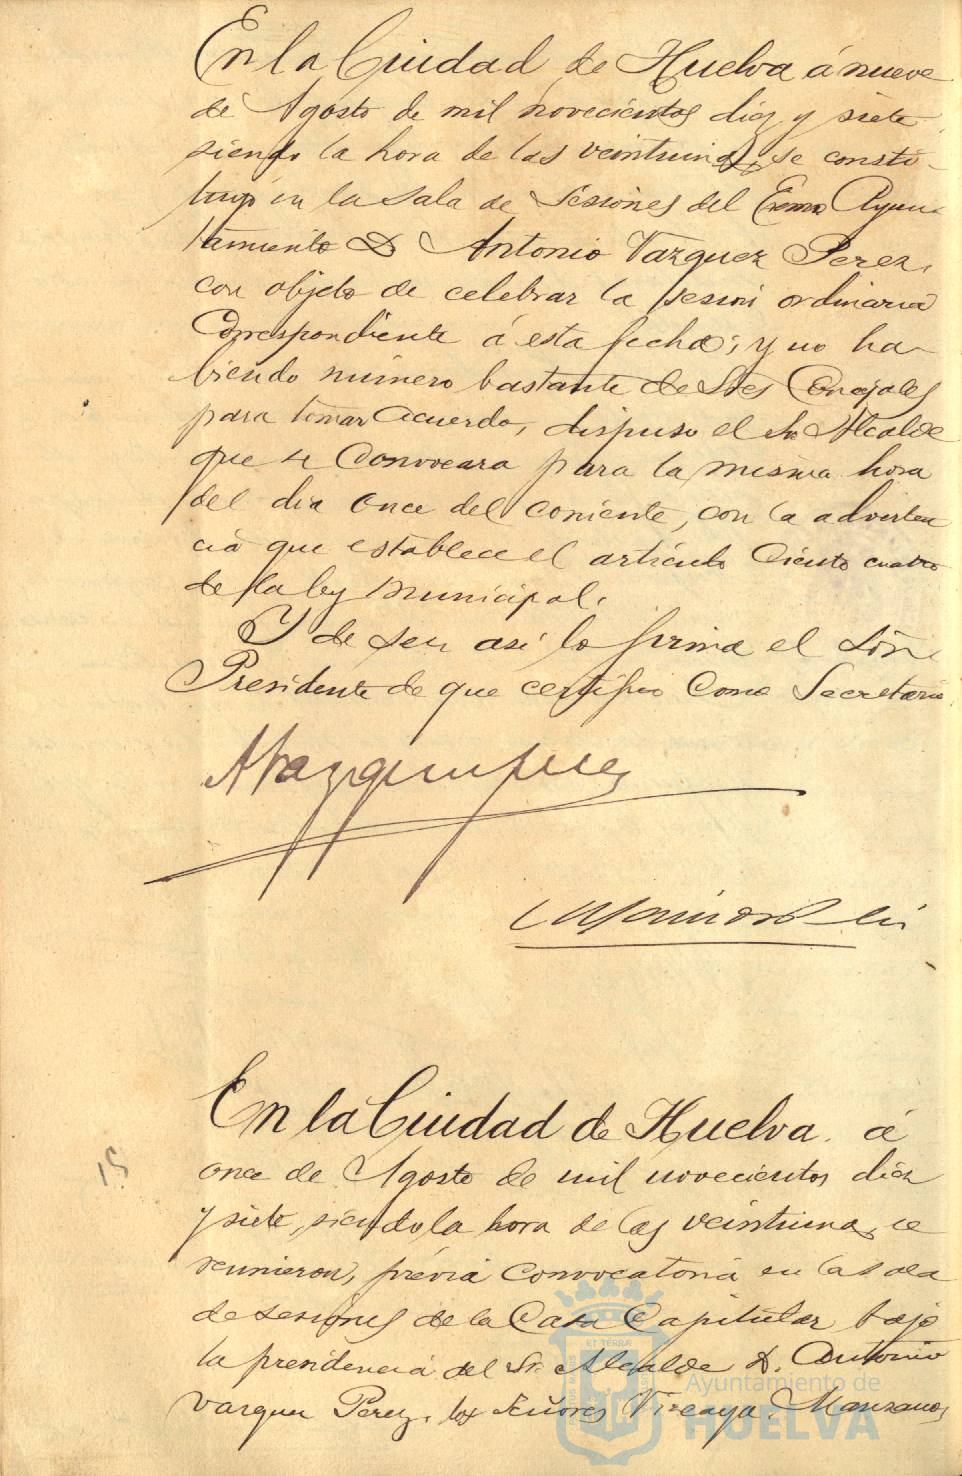 En la Ciudad de Huelva á nueve
de Agosto de mil novecientos diez y siete
siendo la hora de las veintiuna, se consti-
tuyó en la Sala de Sesiones del Excmo Ayun-
tamiento D Antonio Vazquez Perez,
con objeto de celebrar la sesión ordinaria
Correspondiente á esta fecha; y no ha-
biendo número bastante de Sres Concejales
para tomar acuerdo, dispuso el Sr Alcalde
que se Convocara para la misma hora
del dia once del corriente, con la adverten
cia que establece el artículo Ciento cuatro
de la ley Municipal.
Y de ser asi lo firma el Sôr
Presidente de que certifico Como Secretario
En la Ciudad de Huelva á
once de Agosto de mil novecientos diez
y siete, siendo la hora de las veintiuna, se
reunieron, prévia convocatoria en la Sala
de sesiones de la Casa Capitular bajo
la presidencia del Sr. Alcalde D. Antonio
Vazquez Perez, los Señores Vizcaya, Manzano,
15
ET TERRÆ
Ayuntamiento de
HUELVA